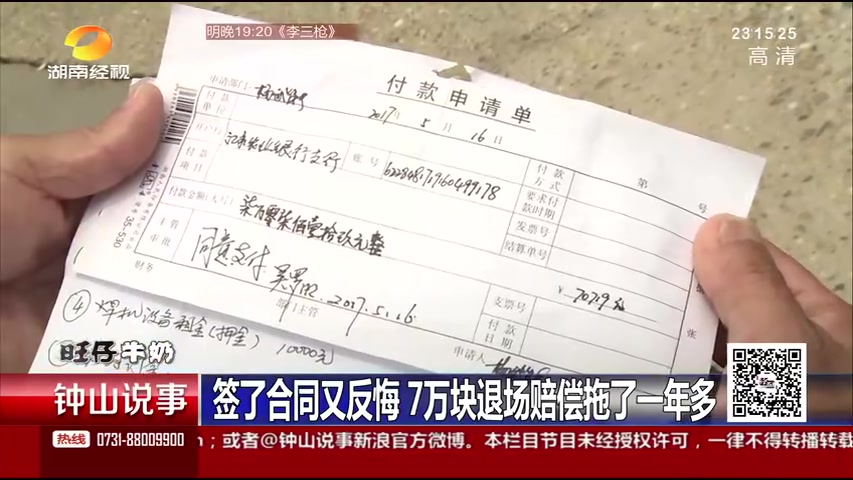 明晚19:20《李三枪》
23:15:25
高清
湖南经视
付款申请单
申请部门:
2017年5月16日
第 号
付款单位
付款方式
开户行 江永农山银行支行
账号
要求付款时期
付款项目
发票号
付款金额(大写) 柒万零柒佰壹拾玖元整
结算单号
¥ 70719元
主管审批
同意支付
2017.5.16
支票号
付款日期
张
财务
部门主管
申请人
35-530
④ 焊机设备租金(押金)
10000元
旺仔牛奶
钟山说事
签了合同又反悔 7万块退场赔偿拖了一年多
热线 0731-88009900
n; 或者@钟山说事新浪官方微博。本栏目节目未经授权许可,一律不得转播转载